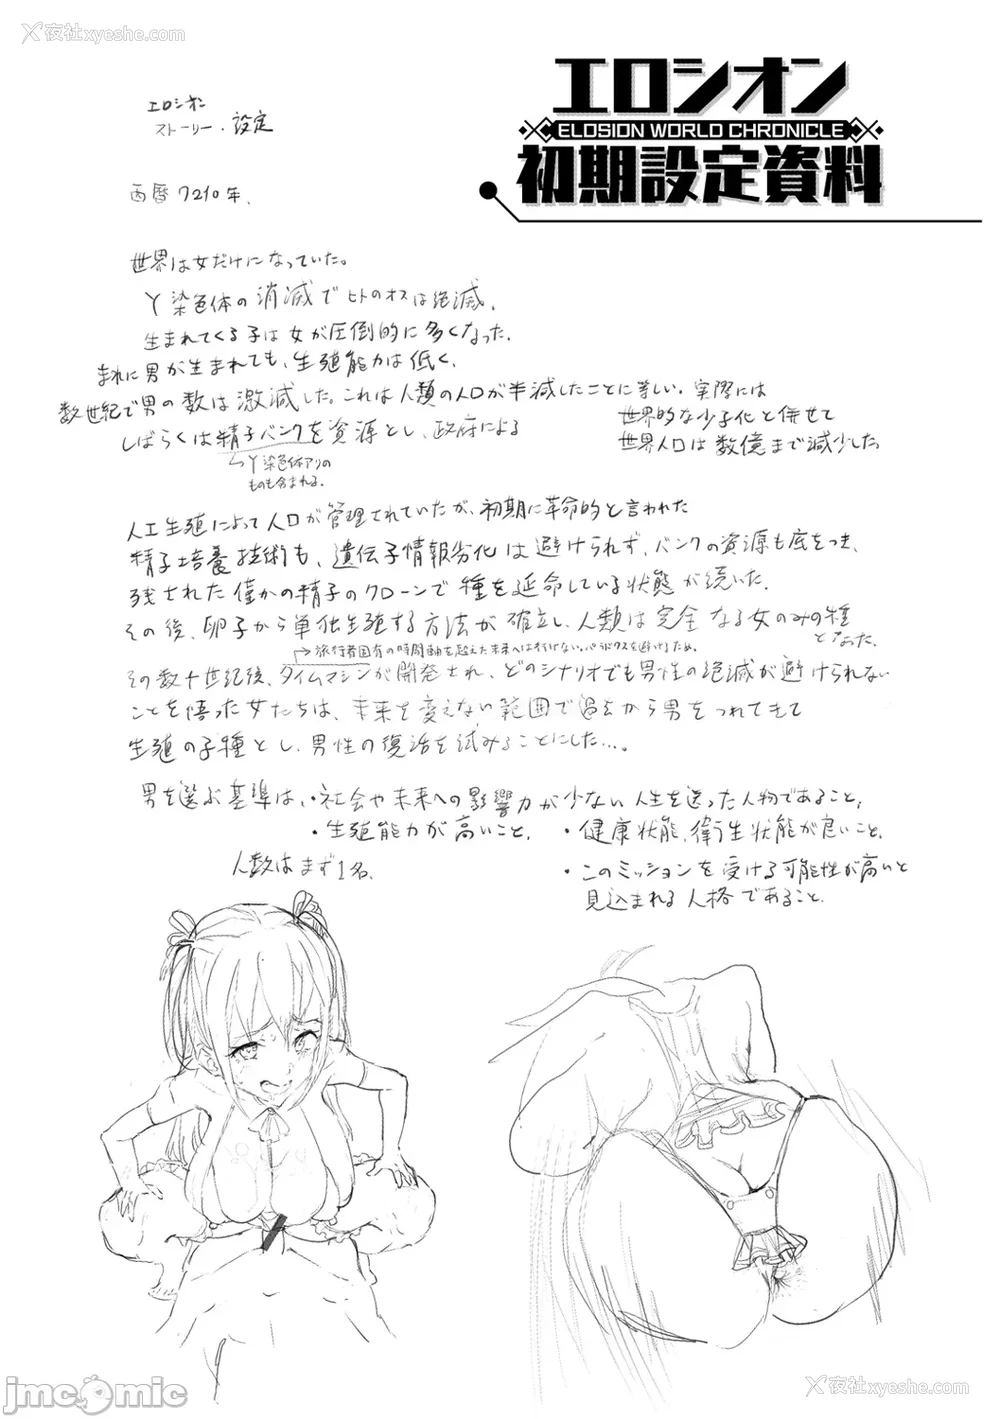 夜社xyeshe.com
夜社xyeshe.com
エロシオン
ELOSION WORLD CHRONICLE
初期設定資料
エロシオン
ストーリー・設定
西暦7210年、
世界は女だけになっていた。
Y染色体の消滅でヒトのオスは絶滅、
生まれてくる子は女が圧倒的に多くなった。
まれに男が生まれても、生殖能力は低く、
数世紀で男の数は激減した。これは人類の人口が半減したことに等しい。実際には
世界的な少子化と併せて
世界人口は数億まで減少した
しばらくは精子バンクを資源とし、政府による
Y染色体アリの
ものも含まれる。
人工生殖によって人口が管理されていたが、初期に革命的と言われた
精子培養技術も、遺伝子情報劣化は避けられず、バンクの資源も底をつき、
残された僅かの精子のクローンで種を延命している状態が続いた。
その後、卵子から単独生殖する方法が確立し、人類は完全なる女のみの種
となった。
旅行者固有の時間軸を超えた未来へは行けない。パラドクスを避けるため。
その数十世紀後、タイムマシンが開発され、どのシナリオでも男性の絶滅が避けられない
ことを悟った女たちは、未来を変えない範囲で過去から男をつれてきて
生殖の子種とし、男性の復活を試みることにした…。
男を選ぶ基準は、・社会や未来への影響力が少ない人生を送った人物であること、
・生殖能力が高いこと。 ・健康状態、衛生状態が良いこと。
人数はまず1名。
・このミッションを受ける可能性が高いと
見込まれる人格であること。
jmcomic
夜社xyeshe.com